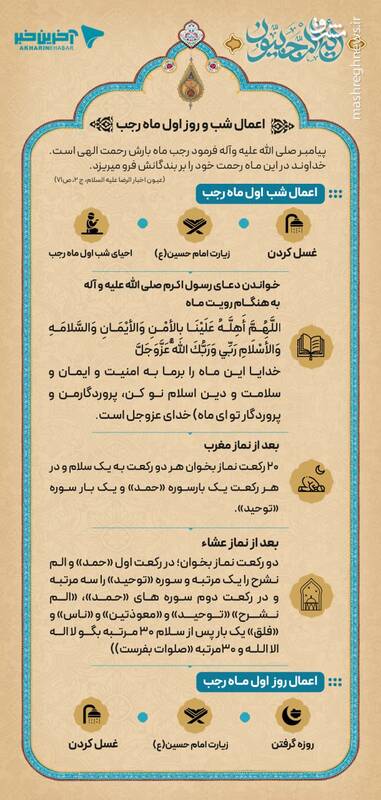 آخرین خبر
AKHARINKHABAR
این الرجبیون
مشرق
mashreghnews.ir
اعمال شب و روز اول ماه رجب
پیامبر صلی الله علیه وآله فرمود رجب ماه بارش رحمت الهی است.
خداوند در این ماه رحمت خود را بر بندگانش فرو میریزد.
(عیون اخبار الرضا علیه السلام، ج ۲، ص ۷۱)
اعمال شب اول ماه رجب
غسل کردن
زیارت امام حسین(ع)
احیای شب اول ماه رجب
خواندن دعای رسول اکرم صلی الله علیه و آله
به هنگام رویت ماه
اللَّهُمَّ أَهِلَّهُ عَلَيْنَا بِالأَمْنِ وَالأیْمَانِ وَالسَّلامَهِ
وَالأَسْلَامِ رَبِّي وَرَبُّكَ اللهُ عَزَّوَجَلَّ
خدایا این ماه را برما به امنیت و ایمان و
سلامت و دین اسلام نو کن، پروردگارمن و
پروردگار تو(ای ماه) خدای عزوجل است.
بعد از نماز مغرب
۲۰ رکعت نماز بخوان هر دو رکعت به یک سلام و در
هر رکعت یک بارسوره «حمد» و یک بار سوره
«توحید».
بعد از نماز عشاء
دو رکعت نماز بخوان؛ در رکعت اول «حمد» و الم
نشرح را یک مرتبه و سوره «توحید» را سه مرتبه
و در رکعت دوم سوره های «حمد»، «الم
نشرح» «توحید» و «معوذتین» و «ناس» و
«فلق» یک بار پس از سلام ۳۰ مرتبه بگو لا اله
الا الله و ۳۰مرتبه «صلوات بفرست))
اعمال روز اول ماه رجب
روزه گرفتن
زیارت امام حسین(ع)
غسل کردن